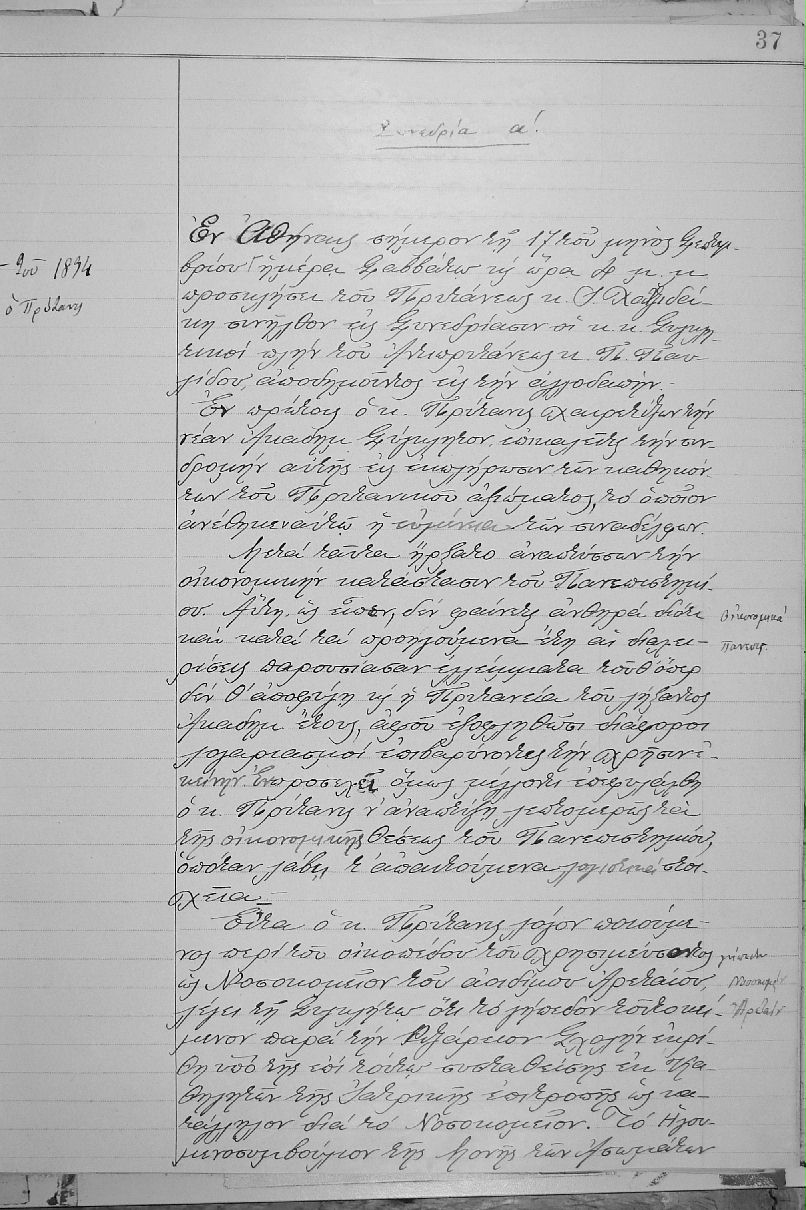 37
Συνεδρία α΄.
Ἐν Ἀθήναις σήμερον τῇ 17 τοῦ μηνὸς Σεπτεμ-
βρίου ἡμέρᾳ Σαββάτῳ ὥρᾳ μ. μ.
προσκλήσει τοῦ Πρυτάνεως κ. Χατζιδά-
κη συνῆλθον εἰς Συνεδρίασιν οἱ κ. κ. Συγκλη-
τικοί πλήν τοῦ Ἀντιπρυτάνεως κ. Π. Παυ
λίδου, ἀποδημοῦντος εἰς τήν ἀλλοδαπήν.-
Ἐν πρώτοις ὁ κ. Πρύτανις χαιρετίζων τήν
νέαν Ἀκαδημ. Σύγκλητον, ἐπικαλεῖται τήν συν-
δρομήν αὐτῆς εἰς ἐκπλήρωσιν τῶν καθηκόν-
των τοῦ Πρυτανικοῦ ἀξιώματος, τό ὁποῖον
ἀνέθηκεν αὐτῷ ἡ εὐμένεια τῶν συναδέλφων.
Μετά ταῦτα ἤρξατο ἀναπτύσσων τήν
οἰκονομικήν κατάστασιν τοῦ Πανεπιστημί-
ου. Αὕτη, ὡς εἶπεν, δέν φαίνεται ἀνθηρά διότι
καί κατά τά προηγούμενα ἔτη αἱ διαχει-
ρίσεις παρουσίασαν ἐλλείμματα τοῦθ' ὅπερ
δέν θ' ἀποφύγῃ κ ἡ Πρυτανεία τοῦ λήξαντος
Ἀκαδημ. ἔτους, ἀφοῦ ἐξοφληθῶσι διάφοροι
λογαριασμοί ἐπιβαρύνοντες τήν χρῆσιν ἐ-
κείνην. Ἐν προσεχεῖ ὅμως μέλλοντι ἐπιφυλάχθη
ὁ κ. Πρύτανις ν' ἀναπτύξῃ λεπτομερῶς τά
τῆς οἰκονομικῆς θέσεως τοῦ Πανεπιστημίου,
ὁπόταν λάβῃ τ' ἀπαιτούμενα λογιστικά στοι-
χεῖα.-
Εἶτα ὁ κ. Πρύτανις λόγον ποιούμε-
νος περί τοῦ οἰκοπέδου τοῦ χρησιμεύσοντος
ὡς Νοσοκομεῖον τοῦ ἀοιδίμου Ἀρεταίου,
λέγει τῇ Συγκλήτῳ ὅτι τό γήπεδον τό κεί-
μενον παρά τήν Ριζάρειον Σχολήν ἐκρί-
θη ὑπό τῆς ἐπί τούτῳ συσταθείσης ἐκ Κα-
θηγητῶν τῆς Ἰατρικῆς ἐπιτροπῆς ὡς κα-
τάλληλον διά τό Νοσοκομεῖον. Τό Ἡγου-
μενοσυμβούλιον τῆς Μονῆς τῶν Ἀσωμάτων
1894
ὁ Πρύτανις
Οἰκονομικά
Πανεπ.
γήπεδον
Νοσοκομεῖον
Ἀρεταίου